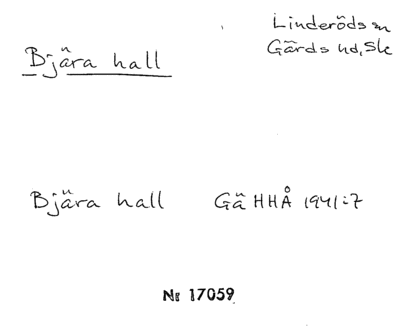 Bjära hall
Linderöds sn
Gärds hd, Sk
Bjära hall Gä HHÅ 1941:7
Nr 17059